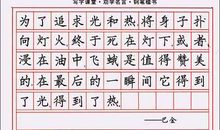 写字课堂·劝学名言·钢笔楷书
为了追求光和热,将身子扑
向灯火,终于死在灯下,或者
浸在油中,飞蛾是值得赞美
的.在最后的一瞬间它得到
了光,得到了热.
——巴金